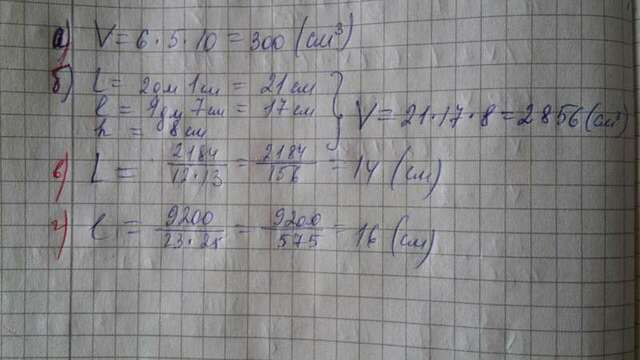 а) V = 6 · 5 · 10 = 300 (см³)
б) L = 2дм 1см = 21 см
l = 1дм 7см = 17 см
h = 8 см
V = 21 · 17 · 8 = 2856 (см³)
в) L = 2184/12·13 = 2184/156 = 14 (см)
г) l = 9200/23·25 = 9200/575 = 16 (см)